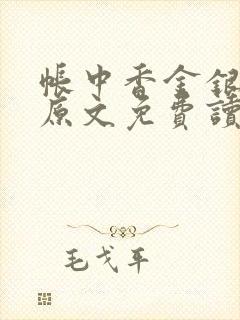 帳中香金銀
原文免費讀
毛戈平